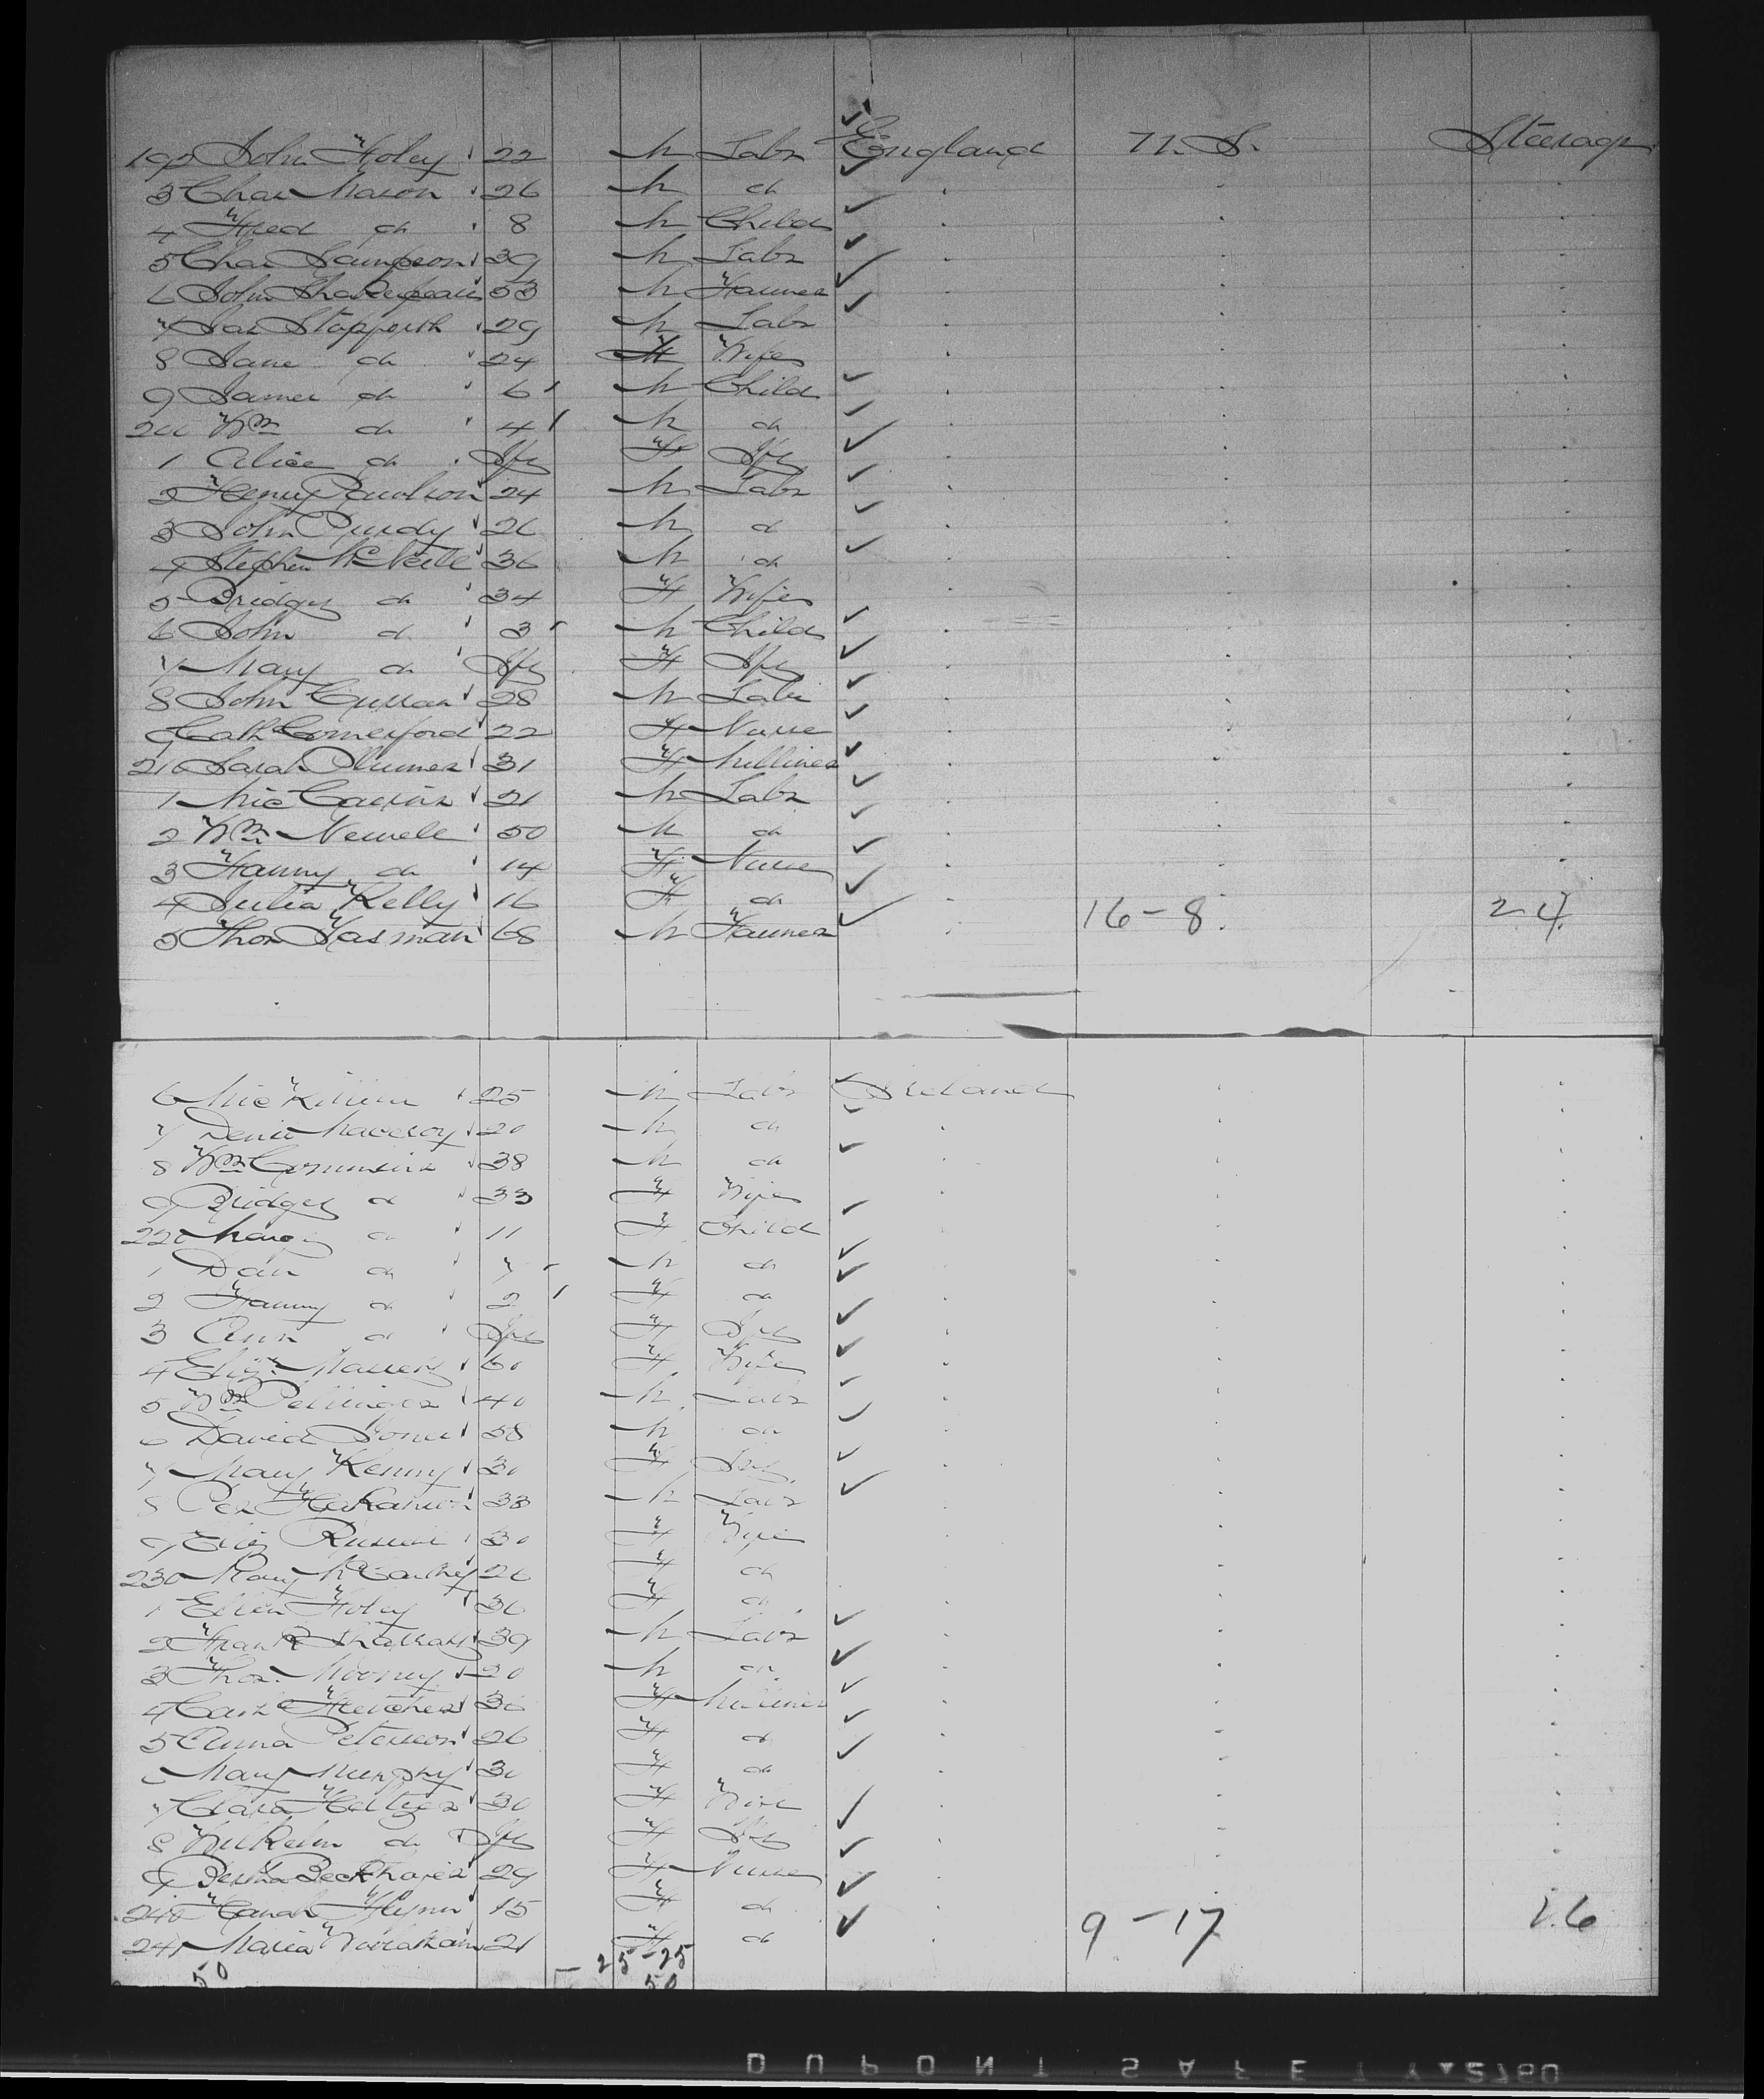 192 John Foley 22 M Labr England U.S. Steerage
3 Chas Mason 26 M do
4 Fred do 8 M Child
5 Chas Sampson 39 M Labr
6 John Shakespeare 53 M Farmer
7 Jas Stopforth 29 M Labr
8 Jane do 24 F Wife
9 James do 6 M Child
200 Wm do 4 M do
1 Alice do Inf F Inf
2 Henry Rawlson 24 M Labr
3 John Purdy 26 M do
4 Stephen McNeile 36 M do
5 Bridget do 34 F Wife
6 John do 3 M Child
7 Mary do Inf F Inf
8 John Curran 28 M Labr
9 Cath Comerford 22 F Nurse
210 Sarah Plumer 31 F Milliner
1 Mic 21 M Labr
2 Wm Newele 50 M do
3 Fanny do 14 F Nurse
4 Julia Kelly 16 F do 16-8 24
5 Thos Yasman 68 M Farmer
6 Mic Killeen 25 M Labr Ireland
7 Denis 20 M do
8 Wm Commins 38 M do
9 Bridget do 33 F Wife
220 Marg do 11 F Child
1 Dan do 7 M do
2 Fanny do 2 F do
3 Ann do Inf F Inf
4 Eliz. 60 F Wife
5 Wm Pellinger 40 M Labr
6 David Jones 38 M do
7 Mary Kenny 30 F
8 Per Hakanson 33 M Labr
9 Eliz Russell 30 F Wife
230 Mary McCarthy 26 F do
1 Ellen Foley 36 F do
2 Frank 39 M Labr
3 Thos. Mooney 20 M do
4 Cath Fletcher 36 F Milliner
5 Anna Peterson 26 F do
6 Mary Murphy 30 F do
7 Clara 30 F Wife
8 Wilhelm do Inf F Inf
9 Bertha 29 F Nurse
240 Hanah Flynn 15 F do 9-17 26
241 Maria 21 F do
50 - 25-25
50
DUPONT SAFETY 2760